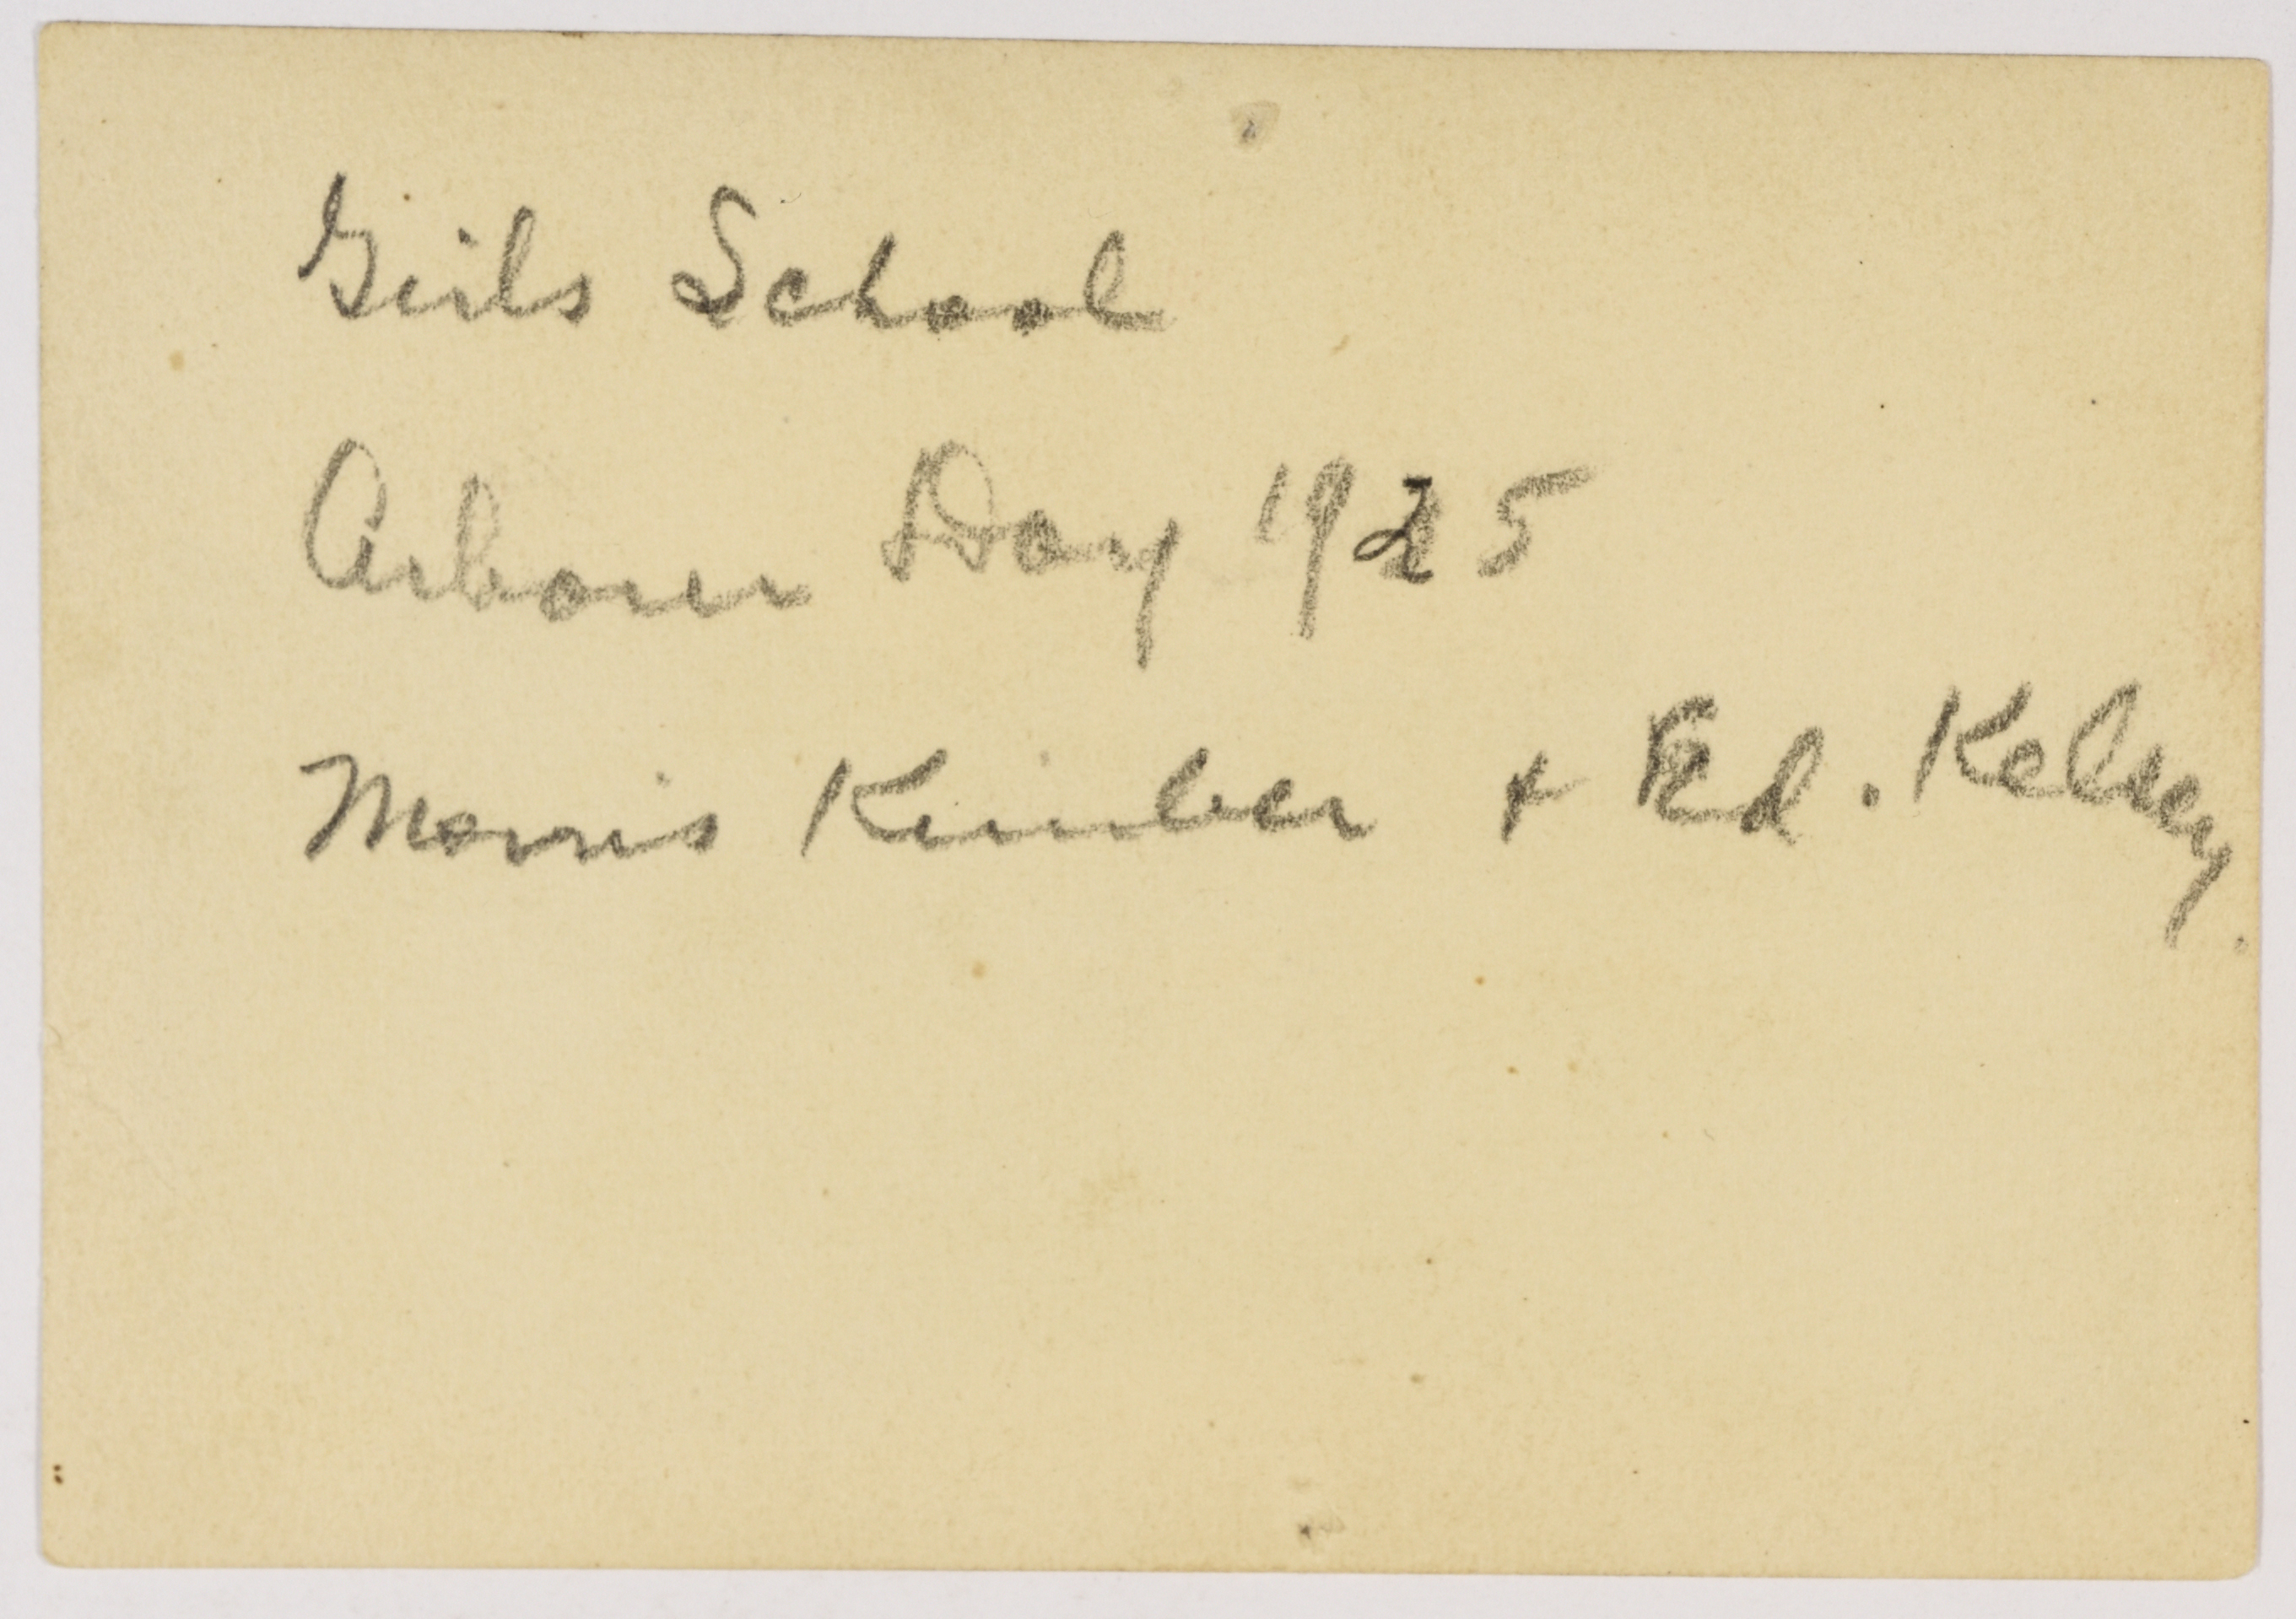 Girls School
Arbour Day 1925
Morris Kimber + Ed. Kelsey.